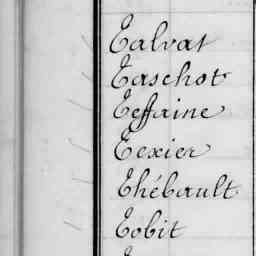 Talvat
Taschot
Teffaine
Texier
Thébault
Tobit